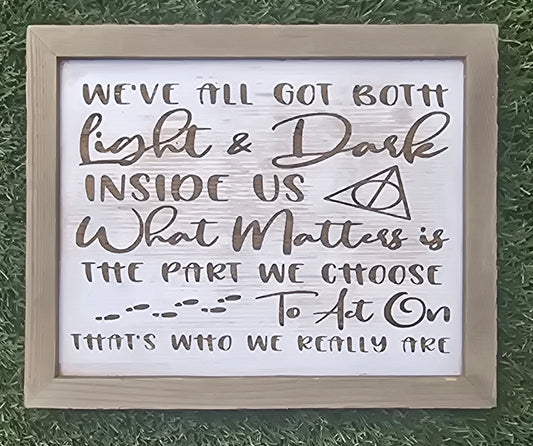 WE'VE ALL GOT BOTH
Light & Dark
INSIDE US
What Matters is
THE PART WE CHOOSE
To Act On
THAT'S WHO WE REALLY ARE